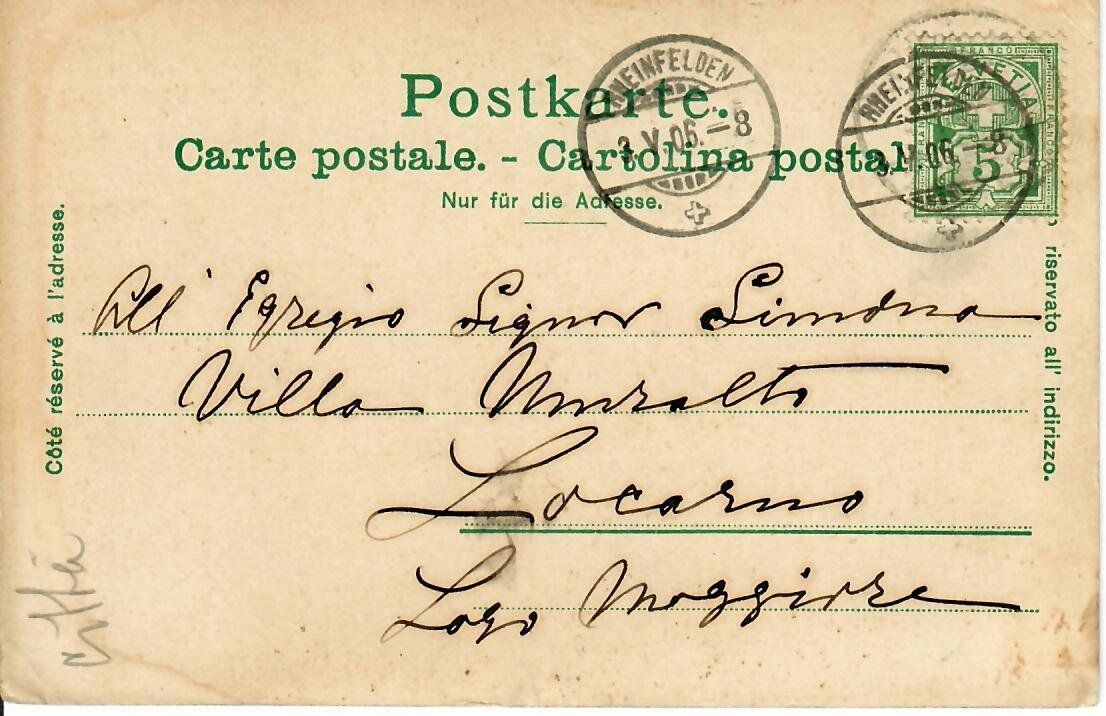 Postkarte.
Carte postale. - Cartolina postal
Nur für die Adresse.
RHEINFELDEN
3.V.06.-8
RHEINFELDEN
3.V.06.-8
FRANCO
HELVETIA
5
Côté réservé à l'adresse.
riservato all' indirizzo.
All' Egregio Signor Simona
Villa Muralto
Locarno
Lago Maggiore
città